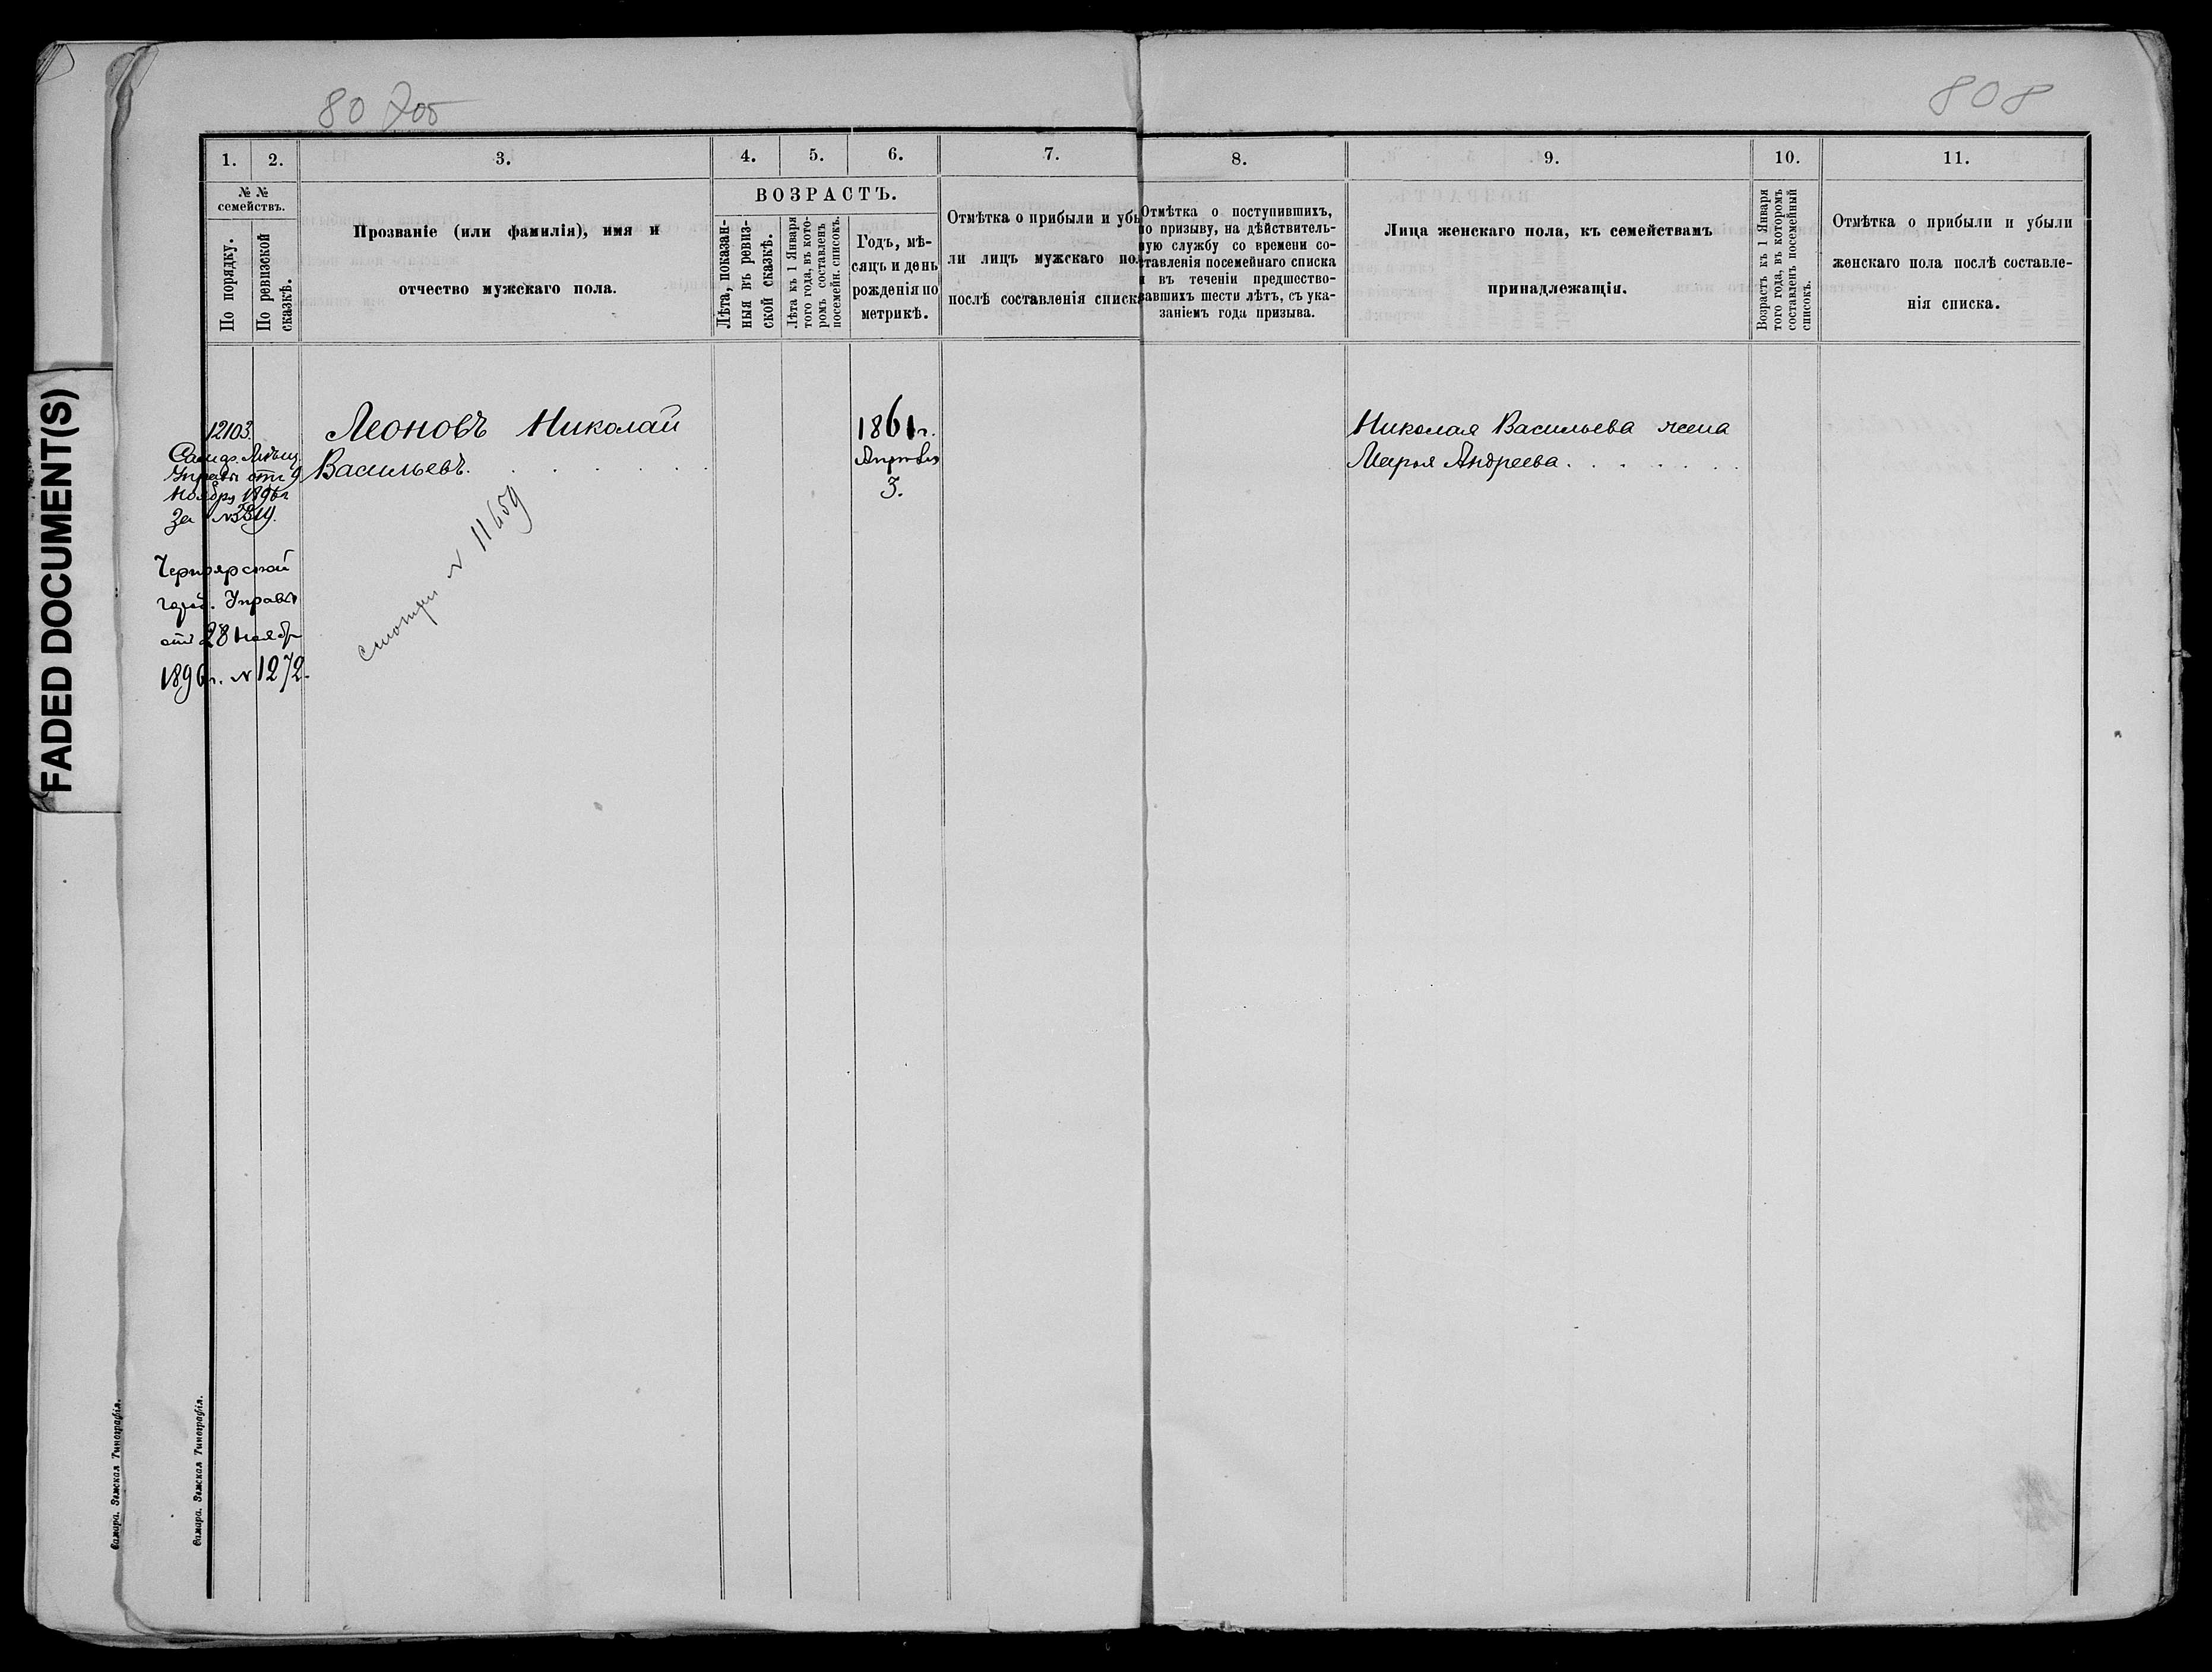 80 705
808
FADED DOCUMENT(S)
1. 2. 3. 4. 5. 6. 7. 8. 9. 10. 11.
№ №
семействъ.
По порядку.
По ревизской
сказкѣ.
Прозваніе (или фамилія), имя и
отчество мужскаго пола.
ВОЗРАСТЪ.
Лѣта, показан-
ныя въ ревиз-
ской сказкѣ.
Лѣта къ 1 Января
того года, въ кото-
ромъ составленъ
посемейн. списокъ.
Годъ, мѣ-
сяцъ и день
рожденія по
метрикѣ.
Отмѣтка о прибыли и убы
ли лицъ мужскаго пол
послѣ составленія списка
Отмѣтка о поступившихъ,
по призыву, на дѣйствитель-
ную службу со времени со-
ставленія посемейнаго списка
и въ теченіи предшество-
вавшихъ шести лѣтъ, съ ука-
заніемъ года призыва.
Лица женскаго пола, къ семействамъ
принадлежащія.
Возрастъ къ 1 Января
того года, въ которомъ
составленъ посемейный
списокъ.
Отмѣтка о прибыли и убыли
женскаго пола послѣ составле-
нія списка.
12103.
Управы отъ 9
Ноября 1896г
За №3819.
Черноярской
город. Управы
отъ 28 Ноябр
1896г. № 1272.
Леоновъ Николай
Васильевъ.
смотри № 11659
1861г.
Апрѣля
3.
Николая Васильева жена
Марья Андреева.
Самара. Земская Типографія.
Самара. Земская Типографія.